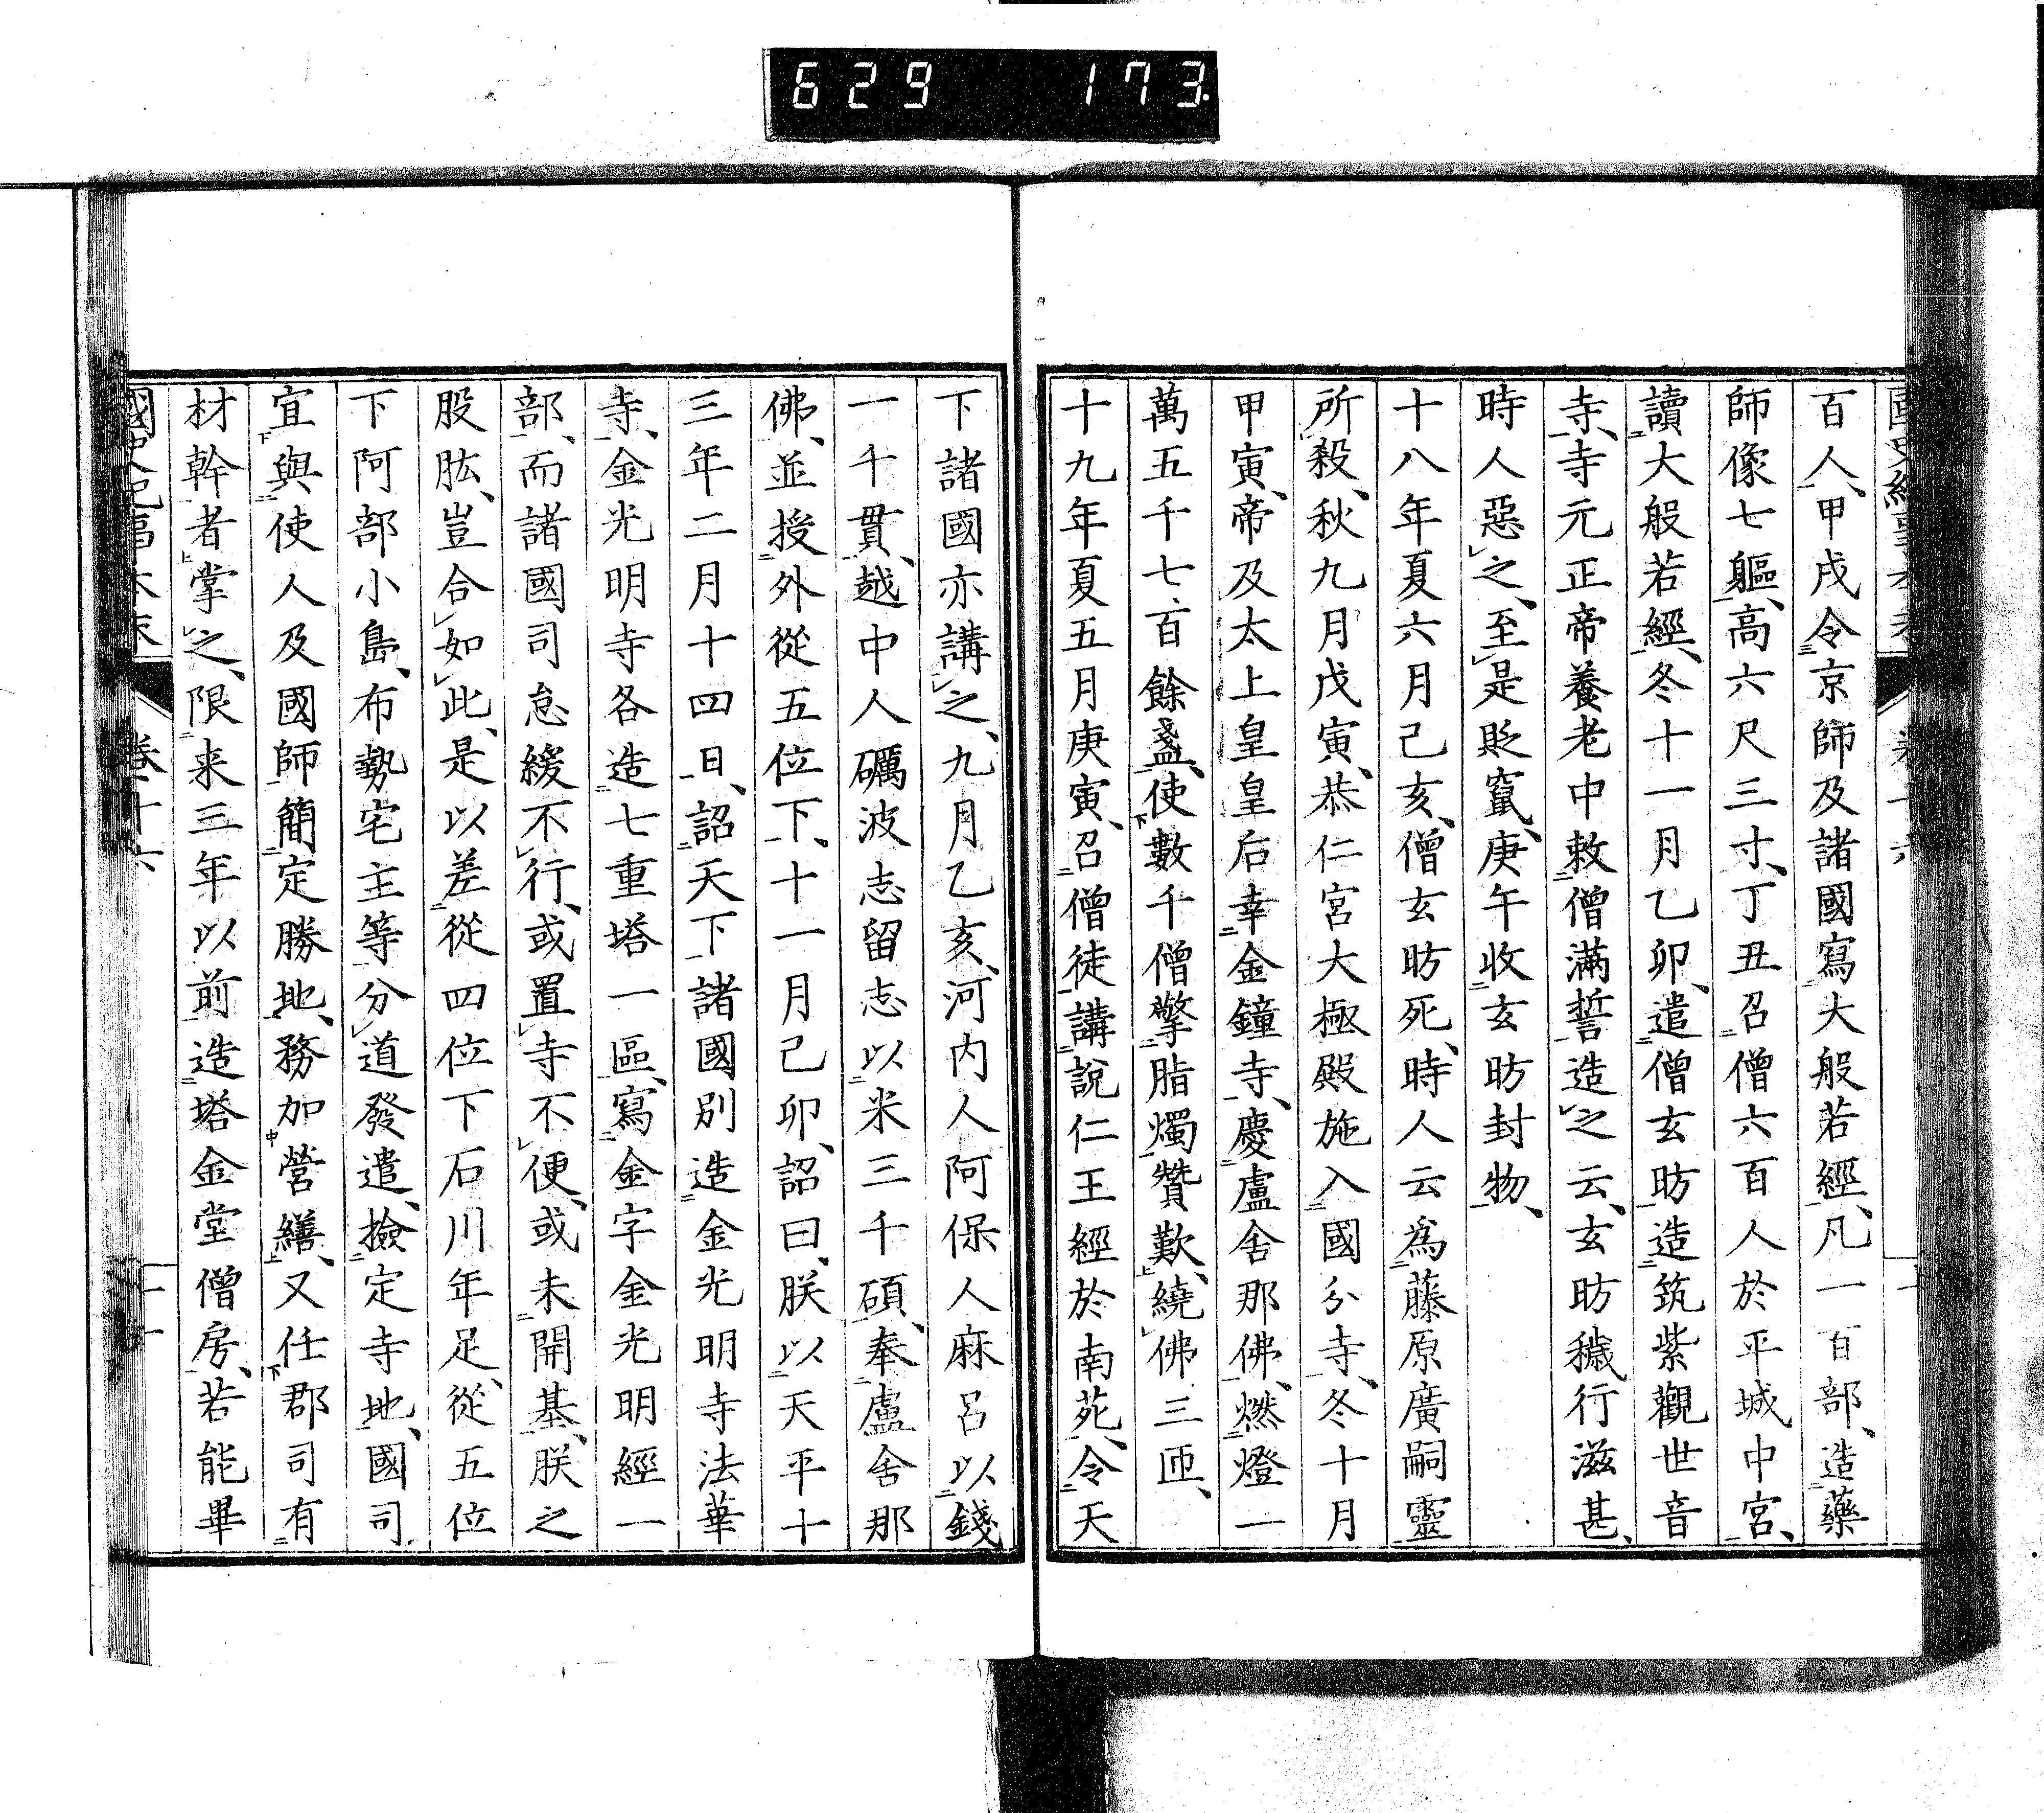 629 173
百人、甲戌令京師及諸國寫大般若經、凡一百部、造藥
師像七軀、高六尺三寸、丁丑召僧六百人於平城中宮、
讀大般若經、冬十一月乙卯、遣僧玄昉造筑紫觀世音
寺、寺元正帝養老中敕僧滿誓造之云、玄昉穢行滋甚、
時人惡之、至是貶竄、庚午收玄昉封物、
十八年夏六月己亥、僧玄昉死、時人云為藤原廣嗣靈
所殺、秋九月戊寅、恭仁宮大極殿施入國分寺、冬十月
甲寅、帝及太上皇皇后幸金鐘寺、慶盧舍那佛、燃燈一
萬五千七百餘盞、使數千僧擎脂燭贊歎、繞佛三匝、
十九年夏五月庚寅、召僧徒講說仁王經於南苑、令天
下諸國亦講之、九月乙亥、河内人阿保人麻呂以錢
一千貫、越中人礪波志留志以米三千碩、奉盧舍那
佛、並授外從五位下、十一月己卯、詔曰、朕以天平十
三年二月十四日、詔天下諸國別造金光明寺法華
寺、金光明寺各造七重塔一區、寫金字金光明經一
部、而諸國司怠緩不行、或置寺不便、或未開基、朕之
股肱、豈合如此、是以差從四位下石川年足、從五位
下阿部小島、布勢宅主等分道發遣、撿定寺地、國司
宜與使人及國師簡定勝地、務加營繕、又任郡司有
材幹者掌之、限来三年以前造塔金堂僧房、若能畢
國史紀事本末 卷十六 十一